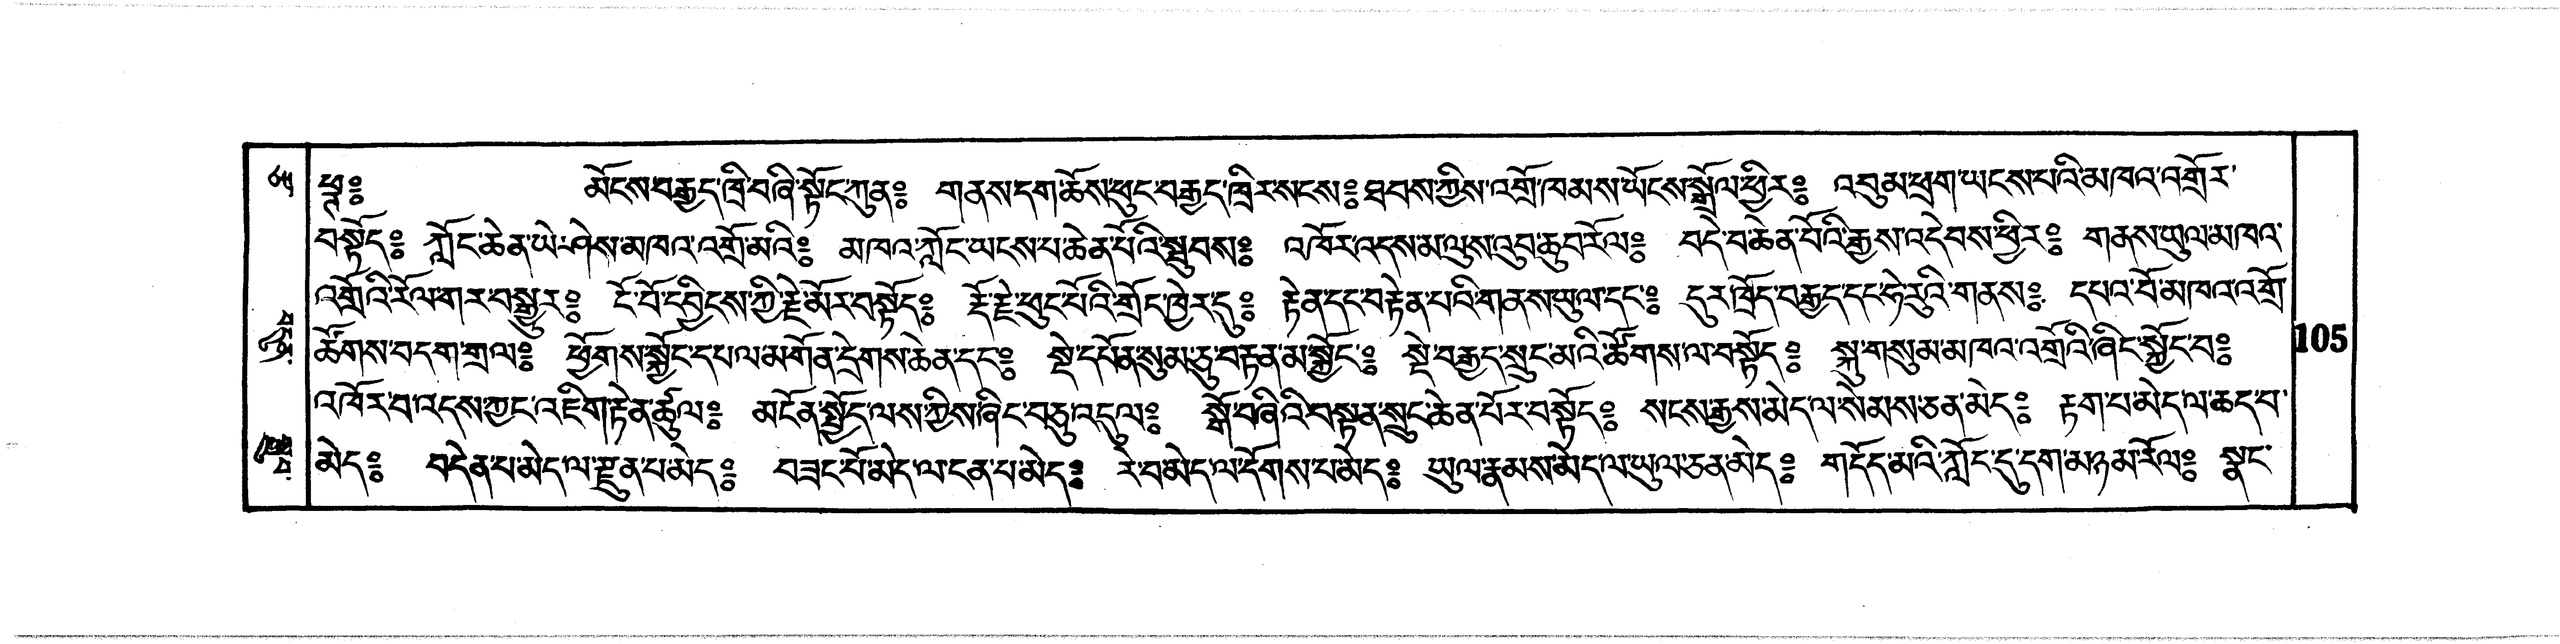 ཕྱཱ༔ མོངས་བརྒྱད་ཁྲི་བཞི་སྟོང་ཀུན༔ གནས་དག་ཆོས་ཕུང་བརྒྱད་ཁྲིར་སངས༔ ཐབས་ཀྱིས་འགྲོ་ཁམས་ཡོངས་སྒྲོལ་ཕྱིར༔ འབུམ་ཕྲག་ཡངས་པའི་མཁའ་འགྲོར་
བསྟོད༔ ཀློང་ཆེན་ཡེ་ཤེས་མཁའ་འགྲོ་མའི༔ མཁའ་ཀློང་ཡངས་པ་ཆེན་པོའི་སྦུབས༔ འཁོར་འདས་མ་ལུས་འུབ་ཆུབ་རོལ༔ བདེ་བ་ཆེན་པོའི་རྒྱས་འདེབས་ཕྱིར༔ གནས་ཡུལ་མཁའ་
འགྲོའི་རོལ་གར་བསྒྱུར༔ ངོ་བོ་དབྱིངས་ཀྱི་རྩེ་མོར་བསྟོད༔ རྡོ་རྗེ་ཕུང་པོའི་གྲོང་ཁྱེར་དུ༔ རྟེན་དང་བརྟེན་པའི་གནས་ཡུལ་དང༔ དུར་ཁྲོད་བརྒྱད་དང་ཧེ་རུའི་གནས༔ དཔའ་བོ་མཁའ་འགྲོ་
ཚོགས་བདག་གྲལ༔ ཕྱོགས་སྐྱོང་དཔལ་མགོན་དྲེགས་ཆེན་དང༔ སྡེ་དཔོན་སུམ་ཅུ་བརྟན་མ་སྐྱོང༔ སྡེ་བརྒྱད་སྲུང་མའི་ཚོགས་ལ་བསྟོད༔ སྐུ་གསུམ་མཁའ་འགྲོའི་ཞིང་སྐྱོང་བ༔
འཁོར་བ་འདས་ཀྱང་འཇིག་རྟེན་ཚུལ༔ མངོན་སྤྱོད་ལས་ཀྱིས་ཞིང་བཅུ་འདུལ༔ སྒོ་བཞིའི་བསྟན་སྲུང་ཆེན་པོར་བསྟོད༔ སངས་རྒྱས་མེད་ལ་སེམས་ཅན་མེད༔ རྟག་པ་མེད་ལ་ཆད་པ་
མེད༔ བདེན་པ་མེད་ལ་རྫུན་པ་མེད༔ བཟང་པོ་མེད་ལ་ངན་པ་མེད༔ རེ་བ་མེད་ལ་དོགས་པ་མེད༔ ཡུལ་རྣམས་མེད་ལ་ཡུལ་ཅན་མེད༔ གདོད་མའི་ཀློང་དུ་དག་མཉམ་རོལ༔ སྣང་
105